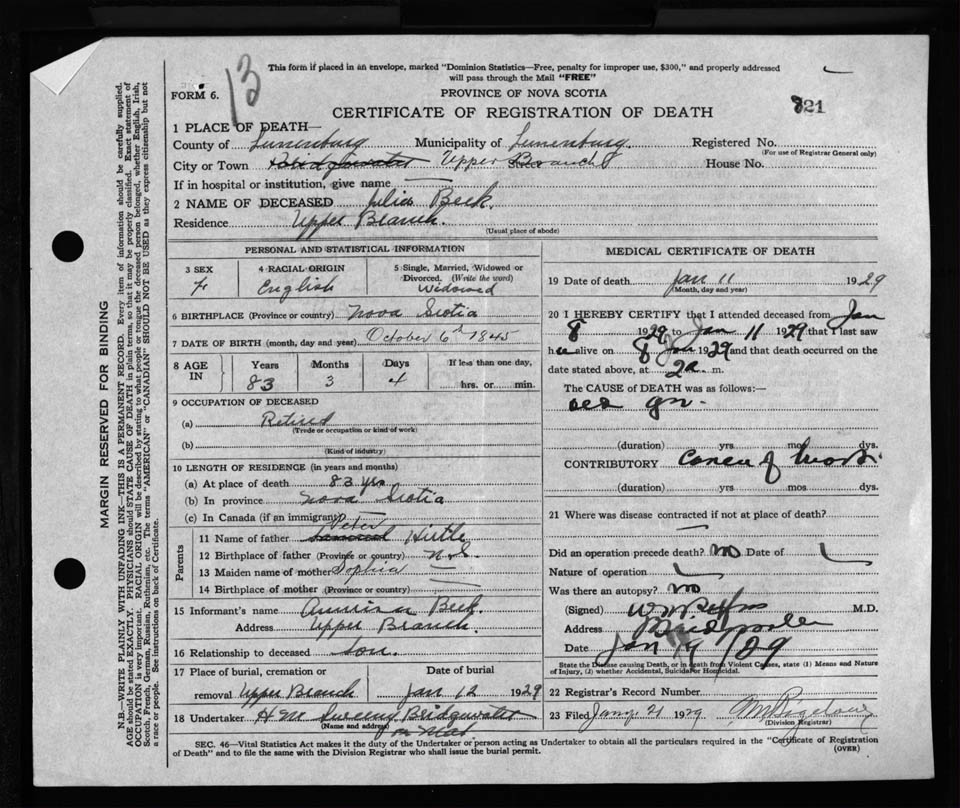 This form if placed in an envelope, marked "Dominion Statistics—Free, penalty for improper use, $300," and properly addressed
will pass through the Mail "FREE"
FORM 6.
13
PROVINCE OF NOVA SCOTIA
CERTIFICATE OF REGISTRATION OF DEATH
821
1 PLACE OF DEATH—
County of Lunenburg Municipality of Lunenburg. Registered No.
(For use of Registrar General only)
City or Town Bridgewater Upper Branch House No.
If in hospital or institution, give name —
2 NAME OF DECEASED Julia Beck.
Residence Upper Branch.
(Usual place of abode)
PERSONAL AND STATISTICAL INFORMATION
3 SEX
F
4 RACIAL ORIGIN
English
5 Single, Married, Widowed or
Divorced. (Write the word)
Widowed
6 BIRTHPLACE (Province or country) Nova Scotia
7 DATE OF BIRTH (month, day and year) October 6th 1845
8 AGE IN
Years Months Days If less than one day,
83 3 4 hrs. or min.
9 OCCUPATION OF DECEASED
(a) Retired
(Trade or occupation or kind of work)
(b)
(Kind of industry)
10 LENGTH OF RESIDENCE (in years and months)
(a) At place of death 83 yrs
(b) In province Nova Scotia
(c) In Canada (if an immigrant) —
Parents
Peter
11 Name of father Samuel Hirtle
12 Birthplace of father (Province or country) N.S
13 Maiden name of mother Sophia —
14 Birthplace of mother (Province or country) —
15 Informant's name Beck.
Address Upper Branch.
16 Relationship to deceased Son.
17 Place of burial, cremation or Date of burial
removal Upper Branch Jan 12 1929
18 Undertaker H M Sweeny Bridgewater
(Name and address)
MEDICAL CERTIFICATE OF DEATH
19 Date of death Jan 11 1929
(Month, day and year)
20 I HEREBY CERTIFY that I attended deceased from Jan
8 1929 to Jan 11 1929 that I last saw
her alive on 8 Jan 1929 and that death occurred on the
date stated above, at 2a m.
The CAUSE of DEATH was as follows:—
(duration) yrs mos dys.
CONTRIBUTORY Cancer of
(duration) yrs mos dys.
21 Where was disease contracted if not at place of death?
—
Did an operation precede death? no Date of
Nature of operation
Was there an autopsy? no
(Signed) M.D.
Address Bridgewater
Date Jan 19/29
State the Disease causing Death, or in death from Violent Causes, state (1) Means and Nature
of Injury, (2) whether Accidental, Suicidal or Homicidal.
22 Registrar's Record Number
23 Filed Jany 21 1929
(Division Registrar)
SEC. 46—Vital Statistics Act makes it the duty of the Undertaker or person acting as Undertaker to obtain all the particulars required in the "Certificate of Registration
of Death" and to file the same with the Division Registrar who shall issue the burial permit. (OVER)
MARGIN RESERVED FOR BINDING
N.B.—WRITE PLAINLY WITH UNFADING INK—THIS IS A PERMANENT RECORD. Every item of information should be carefully supplied.
AGE should be stated EXACTLY. PHYSICIANS should STATE CAUSE OF DEATH in plain terms, so that it may be properly classified. Exact statement of
OCCUPATION is very important. RACIAL ORIGIN will be described by stating to what people or tongue the deceased person belonged, whether English, Irish,
Scotch, French, German, Russian, Ruthenian, etc. The terms "AMERICAN" or "CANADIAN" SHOULD NOT BE USED as they express citizenship but not
a race or people. See instructions on back of Certificate.